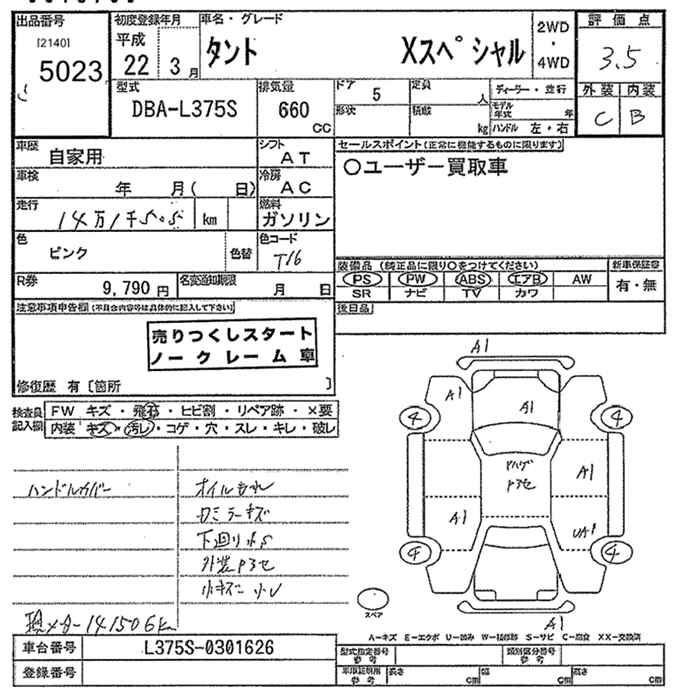 出品番号 初度登録年月 車名・グレード 2WD・4WD 評価点
[2140] 5023 平成 22 3月 タント Xスペシャル 3.5
型式 DBA-L375S 排気量 660 CC ドア 5 定員 人 ディーラー・並行 外装 内装
形状 積載 kg モデル年式 年 ハンドル 左・右 C B
車歴 自家用 シフト AT セールスポイント(正常に機能するものに限ります)
〇ユーザー買取車
車検 年 月( 日) 冷房 AC
走行 km 燃料 ガソリン
色 ピンク 色替 色コード T16
装備品(純正品に限り〇をつけてください) 新車保証書
PS PW ABS エアB AW 有・無
SR ナビ TV カワ
R券 9,790円 名変通知期限 月 日
後日品
注意事項申告欄(不具合内容等は具体的に記入して下さい)
売りつくしスタート
ノークレーム車
修復歴 有〔箇所 〕
検査員記入欄 FW キズ・飛石・ヒビ割・リペア跡・×要
内装 キズ・汚レ・コゲ・穴・スレ・キレ・破レ
A1
A1 A1
4 4
A1
A1 UA1
4 4
スペア
A1
ハンドルカバー オイルもれ
ロミラーキズ
下廻りサS
現メーター141506km
A-キズ E-エクボ U-凹み W-補修跡 S-サビ C-腐食 XX-交換済
車台番号 L375S-0301626
登録番号
型式指定番号 参考 類別区分番号 参考
車庫証明用 参考 長さ cm 幅 cm 高さ cm